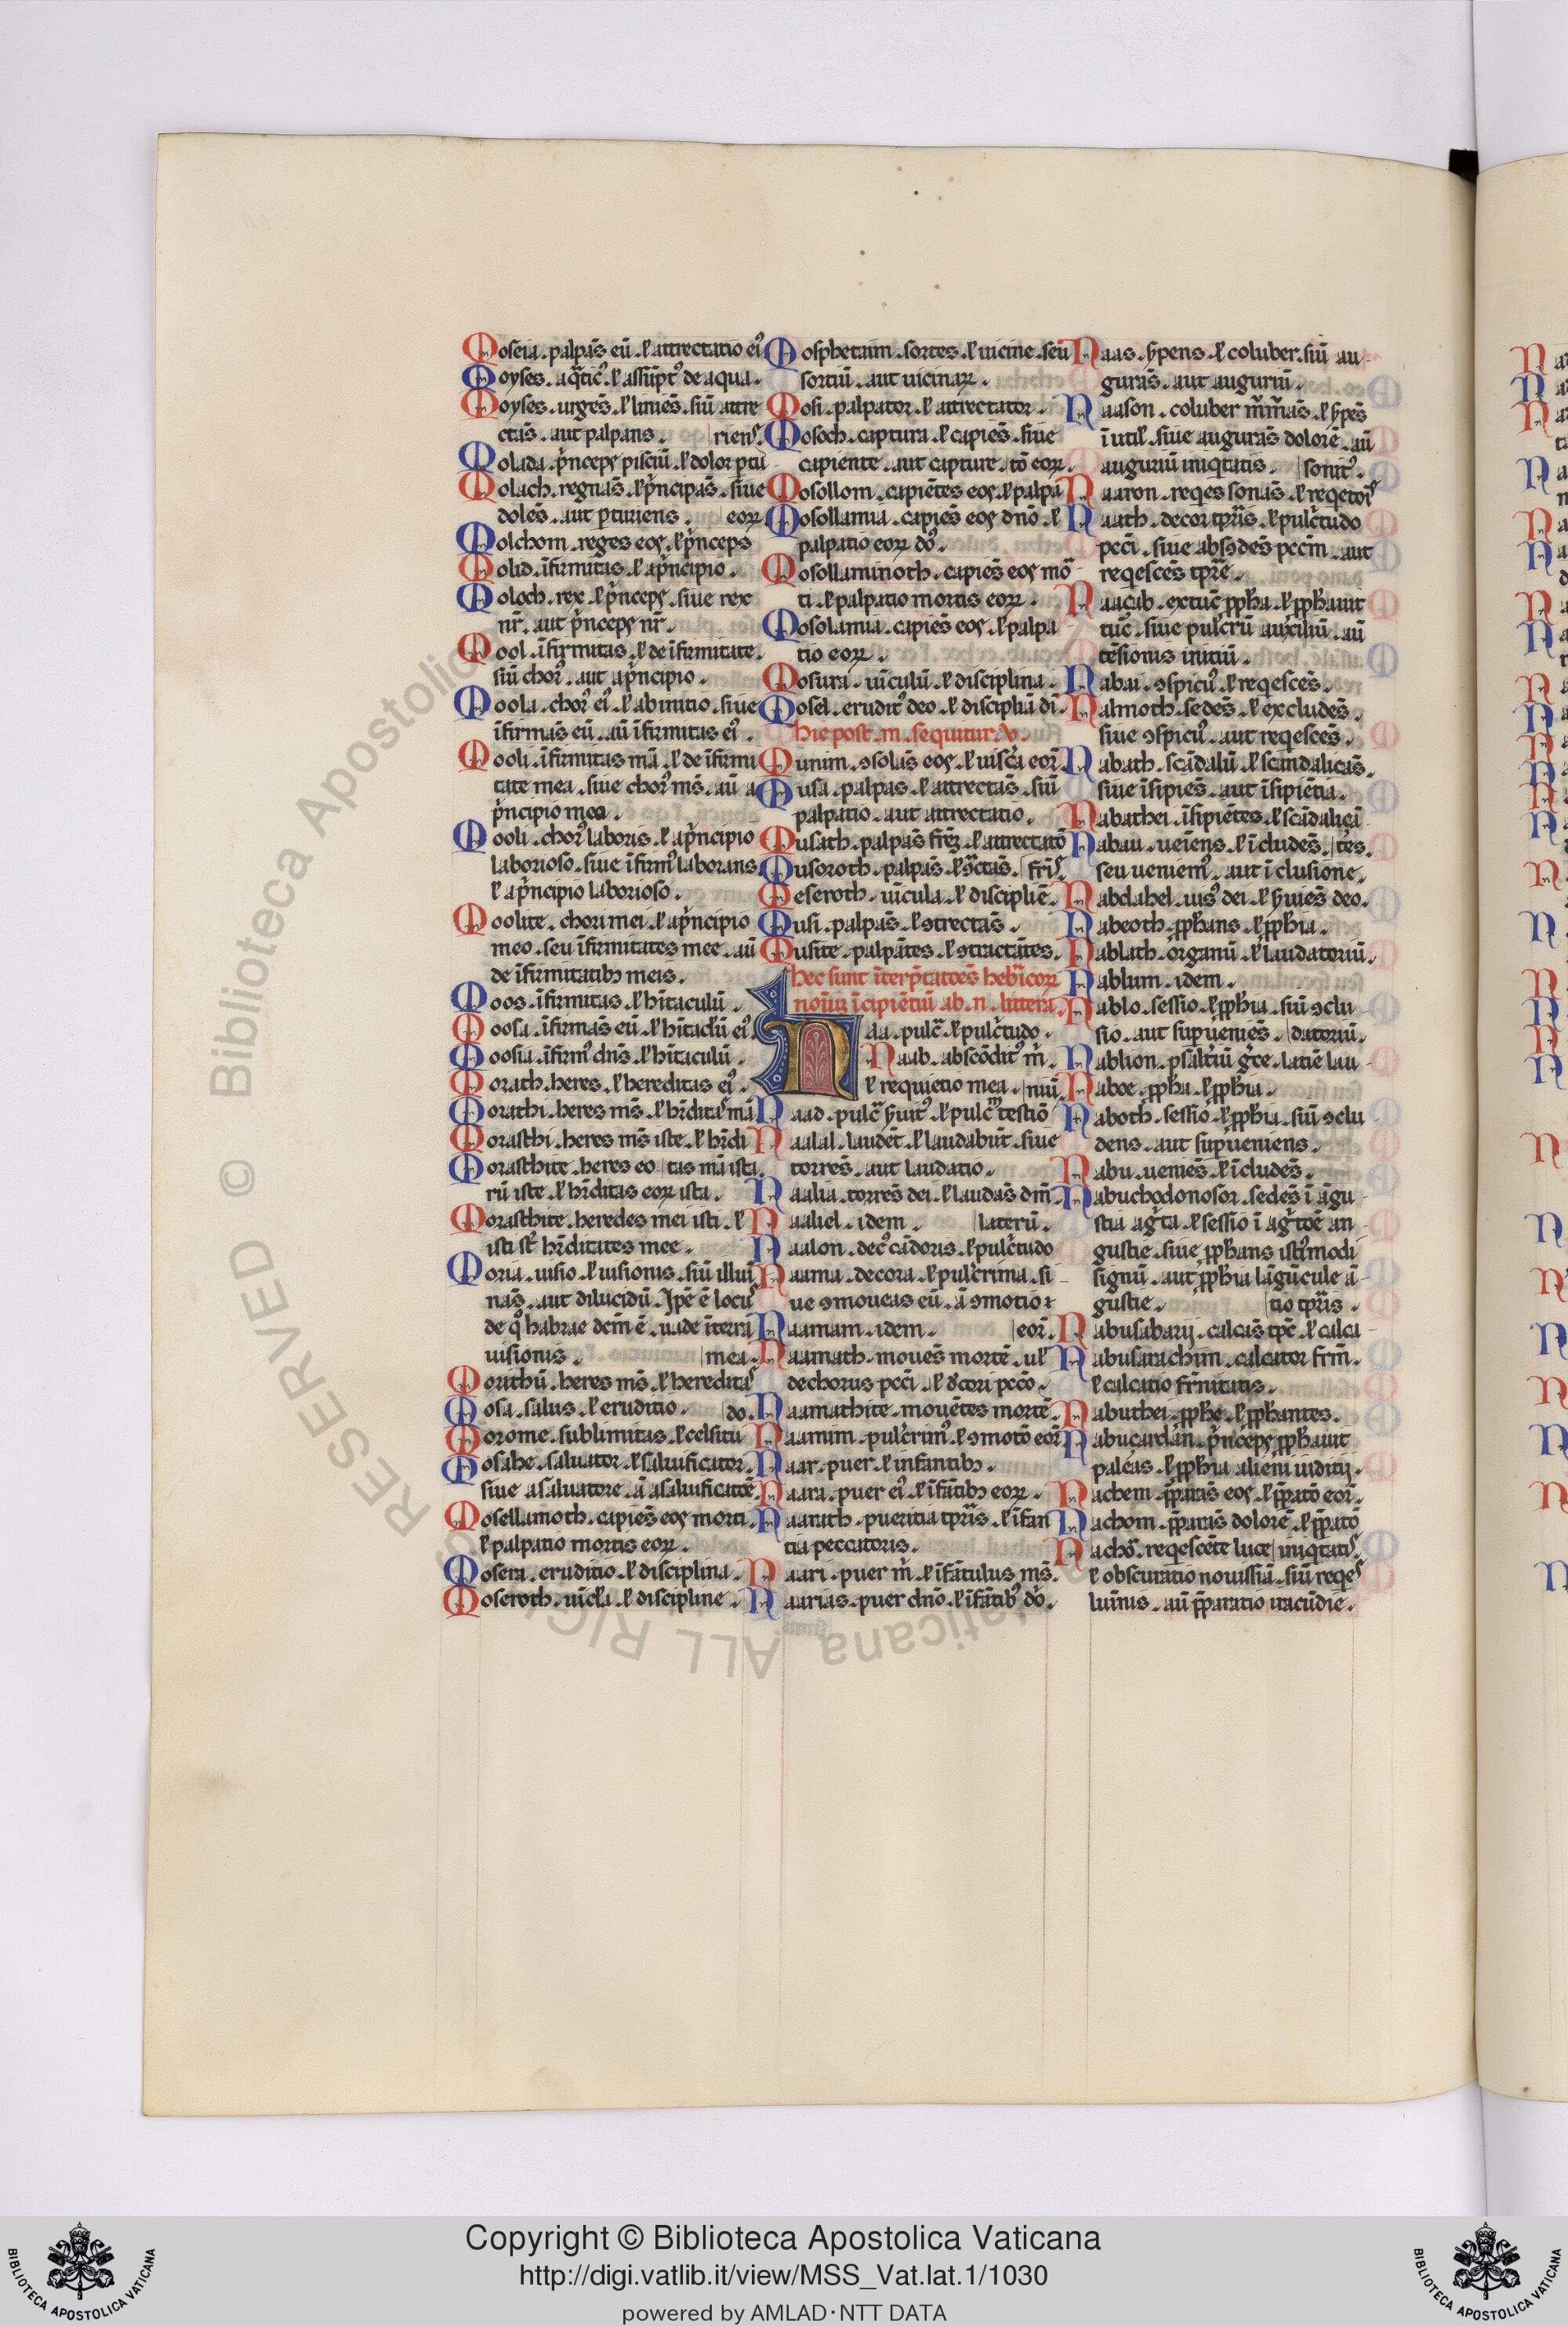 Moseia. palpãs eũ. ł attrectatio ei᷒
Moyses. aq̃tic᷒. ł assũpt᷒ de aqua.
Moyses. urgẽs. ł liniẽs. siũ attre
ctãs. aut palpans. rienẽ.
Molada. p̃nceps pisciũ. ł dolor ptu
Molach. regnãs. ł p̃ncipãs. siue
dolẽs. aut pturiens. eoꝝ
Molchom. reges eos. ł p̃nceps
Molid. ĩfirmitas. ł ap̃ncipio.
Moloch. rex. ł p̃nceps. siue rex
nr̃. aut p̃nceps nr̃.
Mool. ĩfirmitas. ł de ĩfirmitate.
siũ chor᷒. aut ap̃ncipio.
Moola. chor᷒ ei᷒. ł ab initio. siue
ĩfirmãs eũ. aũ ĩfirmitas ei᷒.
Mooli. ĩfirmitas mã. ł de ĩfirmi
tate mea. siue chor᷒ ms̃. aũ a
p̃ncipio mea.
Mooli. chor᷒ laboris. ł ap̃ncipio
laborioso. siue ĩfirm᷒ laborans.
ł ap̃ncipio laborioso.
Moolite. chori mei. ł ap̃ncipio
meo. seu ĩfirmitates mee. aũ
de ĩfirmitatibꝫ meis.
Moos. ĩfirmitas. ł hĩtaculũ.
Moosa. ĩfirmãs eũ. ł hĩtaclũ ei᷒.
Moosia. ĩfirm᷒ dñs. ł hĩtaculũ.
Morath. heres. ł hereditas ei᷒.
Morathi. heres ms̃. ł hr̃ditas mã
Morasthi. heres ms̃ iste. ł hr̃di
Morasthite. heres eo tas mã ista.
rũ iste. ł hr̃ditas eoꝝ ista.
Morasthite. heredes mei isti. ł
isti st̃ hr̃ditates mee.
Moria. uisio. ł uisionis. siũ illuĩ
nãs. aut dilucidũ. Ip̃e ẽ locus
de q̊ habrae dcm̃ ẽ. uade ĩ terrã
uisionis. mea.
Morithũ. heres ms̃. ł hereditas
Mosa. salus. ł eruditio. do.
Morome. sublimitas. ł celsitu
Mosabe. saluator. ł saluificator.
siue a saluatore. ã a saluificatoẽ.
Mosellamoth. capiẽs eos morti.
ł palpatio mortis eoꝝ.
Mosera. eruditio. ł disciplina.
Moseroth. uĩcla. ł discipline.
Mosphetaim. sortes. ł uicine. seu
sortiũ. aut uicinaꝝ.
Mosi. palpator. ł attrectator.
Mosoch. captura. ł capiẽs. siue
capiente. aut capture. tõ eoꝝ.
Mosollom. capiẽtes eos. ł palpa
Mosollamia. capiẽs eos dnõ. ł
palpatio eoꝝ dõ.
Mosollaminoth. capiẽs eos mo᷑
ti. ł palpatio mortis eoꝝ.
Mosolamia. capiẽs eos. ł palpa
tio eoꝝ.
Mosura. uĩculũ. ł disciplina.
Mosel. erudit᷒ deo. ł disciplĩa di.
hic post. m. sequitur. v.
Munim. ꝯsolãs eos. ł uisc̃a eoꝝ.
Musa. palpas. ł attrectãs. siũ
palpatio. aut attrectatio.
Musath. palpãs fr̃eꝫ. ł attrectatõ
Musoroth. palpãs. ł ꝯ̃ctãs. fr̃is.
Meseroth. uĩcula. ł displiẽ.
Musi. palpãs. ł ꝯtrectãs.
Musite. palpãtes. ł ꝯtractãtes.
hec sunt ĩterp̃tatoẽs hebĩcoꝝ
noĩuꝫ ĩcipiẽtiũ ab. n. littera.
Naa. pulc̃. ł pulc̃tudo.
Naab. abscõdit᷒ m̃.
ł requietio mea. niũ
Naad. pulc̃ h̃uit᷒. ł pulc̃ testiõ
Naalal. laudẽt. ł laudabũt. siue
torrẽs. aut laudatio.
Naalia. torrẽs dei. ł laudãs dm̃.
Naaliel. idem. laterũ.
Naalon. dec᷒ cãdoris. ł pulc̃tudo
Naama. decora. ł pulc̃rima. si
ue ꝯmoueas eũ. ã ꝯmotio
Naamam. idem. eoꝝ.
Naamath. mouẽs mortẽ. ul̃
dechorus pcc̃i. ł dc̃ori pcc̃o.
Naamathite. mouẽtes mortẽ.
Naamim. pulc̃rim᷒. ł ꝯmotõ eoꝝ
Naar. puer. ł infantibꝫ.
Naara. puer ei᷒. ł ĩfãtibꝫ eoꝝ.
Naarath. pueritia tp̃ris. ł ĩfan
tia peccatoris.
Naari. puer m̃. ł ĩfãtulus ms̃.
Naarias. puer dnõ. ł ĩfãtib᷒ dõ.
Naas. h̃pens. ł coluber. siũ au
gurãs. aut auguriũ.
Naason. coluber m̃m̃ãs. ł h̃pẽs
ĩutil̃. siue augurãs dolorẽ. aũ
auguriũ iniq̃tatis. sonit᷒.
Naaron. reqẽs sonãs. ł reqetoĩs
Naath. decor tp̃ris. ł pulc̃tudo
pcc̃i. siue absꝯdẽs pccm̃. aut
reqescẽs tp̃re.
Naacab. ex tũc p̃pha. ł p̃phauit
tũc. siue pulc̃rũ auxiliũ. aũ
tẽsionis initiũ.
Nabai. ꝯspicu᷒. ł reqescẽs.
Nalmoth. sedẽs. ł excludẽs.
siue ꝯspicu᷒. aut reqescẽs.
Nabath. scãdalũ. ł scandalicãs.
siue ĩsipiẽs. aut ĩsipiẽtia.
Nabathei. ĩsipiẽtes. ł scãdalicã
Nabau. ueĩens. ł ĩcludẽs. tẽs.
seu ueniem᷒. aut ĩclusione.
Nabdahel. uis᷒ dei. ł h̃uiẽs deo.
Nabeoth. p̃phans. ł p̃phia.
Nablath. organũ. ł laudatoriũ.
Nablum. idem.
Nablo. sessio. ł p̃phia. siũ ꝯclu
sio. aut supueniẽs. datoriũ.
Nablion. psaltiũ gc̃e. latiẽ lau
Naboe. p̃pha. ł p̃phia.
Naboth. sessio. ł p̃phia. siũ ꝯclu
dens. aut supueniens.
Nabu. ueniẽs. ł ĩcludẽs.
Nabuchodonosor. sedẽs ĩ ãgu
stia ag̃ta. ł sessio ĩ ag̃toẽ an
gustie. siue p̃phans isti᷒modi
signũ. aut p̃phia lãgũcule ã
gustie. tio tp̃ris.
Nabusabarij. calcãs tp̃e. ł calca
Nabusarachim. calcator frm̃.
ł calcatio fr̃nitatis.
Nabuthei. p̃phe. ł p̃phantes.
Nabuçardan. p̃nceps p̃phauit
paleas. ł p̃phia alieni iuditij.
Nachem. p̃parãs eos. ł p̃patõ eoꝝ.
Nachom. p̃parãs dolorẽ. ł p̃patõ
Nachõ. reqescẽte luce iniq̃tatis.
ł obscuratio nouissĩa. siũ reqes
luĩnis. aũ p̃paratio iracũdie.
© Biblioteca Apostolica Vaticana ALL RIGHTS RESERVED
BIBLIOTECA APOSTOLICA VATICANA
Copyright © Biblioteca Apostolica Vaticana
http://digi.vatlib.it/view/MSS_Vat.lat.1/1030
powered by AMLAD·NTT DATA
BIBLIOTECA APOSTOLICA VATICANA